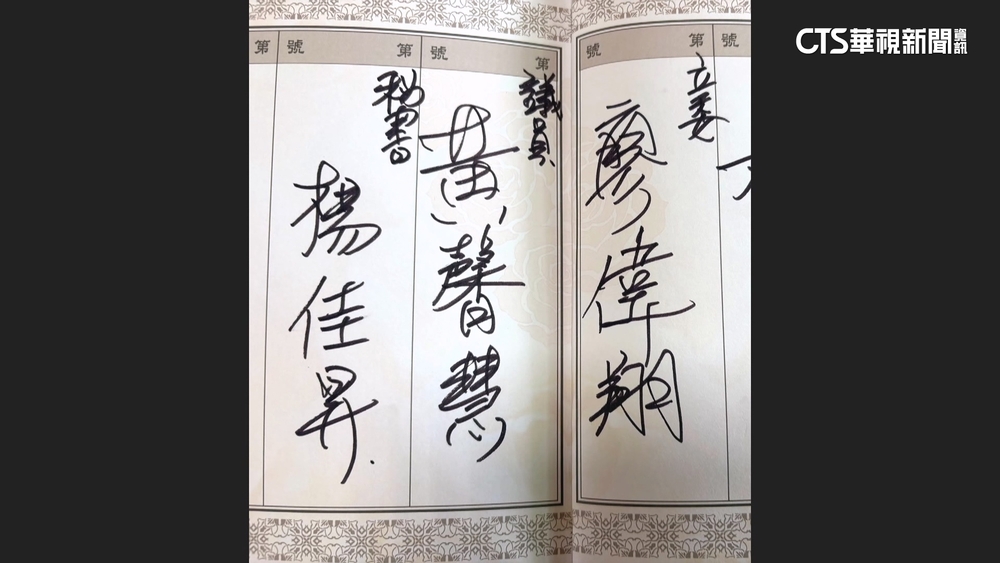 CTS華視新聞資訊
號
第
立委
廖偉翔
號
第
議員
黃馨慧
號
第
秘書
楊佳昇
第